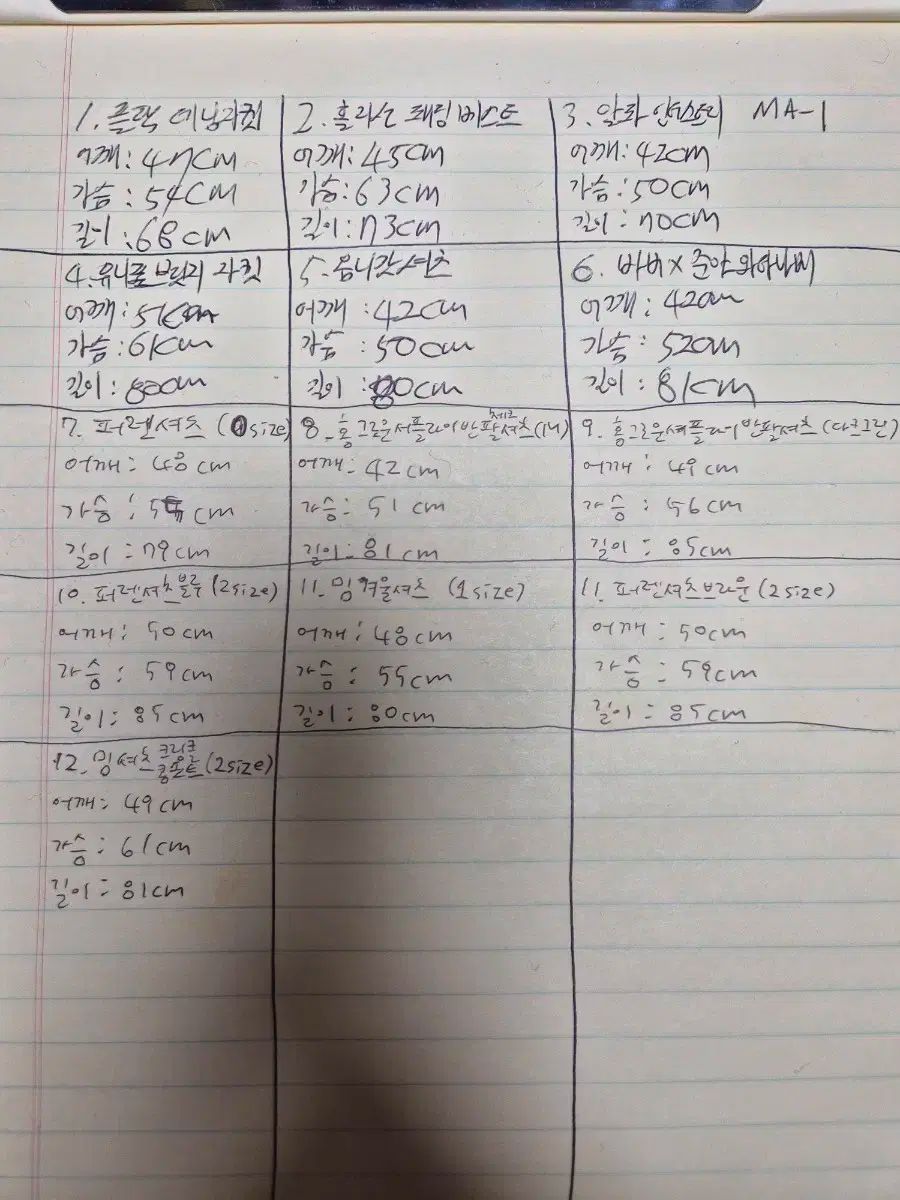 1. 플랙 데님자켓
어깨: 47cm
가슴: 54cm
길이: 68cm
2. 홀리선 패딩 베스트
어깨: 45cm
가슴: 63cm
길이: 73cm
3. 알파 인더스트리 MA-1
어깨: 42cm
가슴: 50cm
길이: 70cm
4. 유니폼브릿지 자켓
어깨: 51cm
가슴: 61cm
길이: 80cm
5. 옴니갓셔츠
어깨: 42cm
가슴: 50cm
길이: 80cm
6. 바버 X 준야 와타나베
어깨: 42cm
가슴: 52cm
길이: 81cm
7. 퍼렌셔츠 (0size)
어깨: 48cm
가슴: 5 cm
길이: 79cm
8. 홈그로운서플라이 반팔셔츠
어깨: 42cm
가슴: 51cm
길이: 81cm
9. 홈그로운서플라이 반팔셔츠 (다크그린)
어깨: 49cm
가슴: 56cm
길이: 85cm
10. 퍼렌셔츠블루 (2size)
어깨: 50cm
가슴: 59cm
길이: 85cm
11. 밍겨울셔츠 (1size)
어깨: 48cm
가슴: 55cm
길이: 80cm
11. 퍼렌셔츠브라운 (2size)
어깨: 50cm
가슴: 59cm
길이: 85cm
12. 밍셔츠 (2size)
어깨: 49cm
가슴: 61cm
길이: 81cm